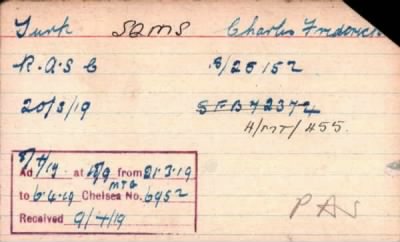 Turk SDMS Charles Frederick
R.A.S.C S/25152
20/3/19 SFB42372
H/MT/455.
8/4/19
Ad at 8/9 from 21.3.19
MTG
to 6.4.19 Chelsea No. 6952
Received 9/4/19
PAS